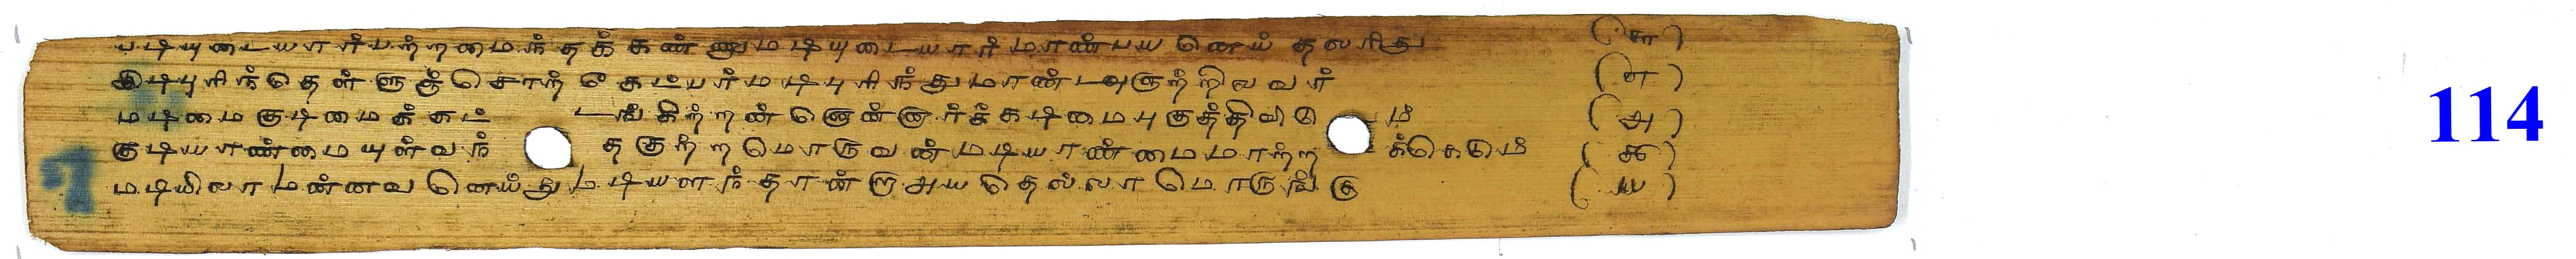 படியுடையார்பற்றமைந்தக்கண்ணுமடியுடையார்மாண்பயனெய்தலரிது (௬)
இடிபுரிந்தெள்ளுஞ்சொற்கேட்பர்மடிபுரிந்துமாண்டவுஞற்றிலவர் (௭)
மடிமைகுடிமைக்கட் டங்கிற்றன்னொன்னார்க்கடிமைபுகுத்திவிடு ம் (௮)
குடியாண்மையுள்வந் தகுற்றமொருவன்மடியாண்மைமாற்ற க்கெடும் (௯)
மடியிலாமன்னவனெய்துமடியளந்தான்றாஅயதெல்லாமொருங்கு (௰)
114